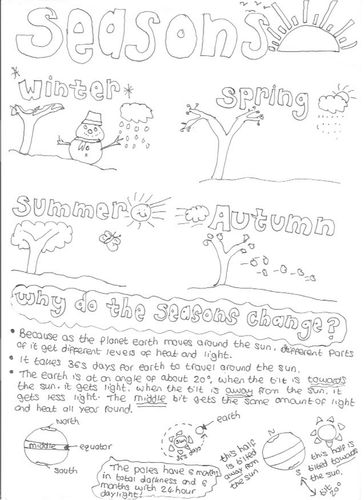 Seasons
Winter
Spring
Summer
Autumn
Why do the seasons change?
• Because as the planet earth moves around the sun, different parts
of it get different levels of heat and light.
• It takes 365 days for earth to travel around the sun.
• The earth is at an angle of about 20°, when the tilt is towards
the sun, it gets light, when the tilt is away from the sun, it
gets less light. The middle bit gets the same amount of light
and heat all year round.
North
middle
equator
South
earth
Sun
365 days
The poles have 6 months
in total darkness and 6
months with 24 hour
daylight!
this half
is tilted
away from
the sun
N
S
this half is
tilted towards
the sun.
bit
20°